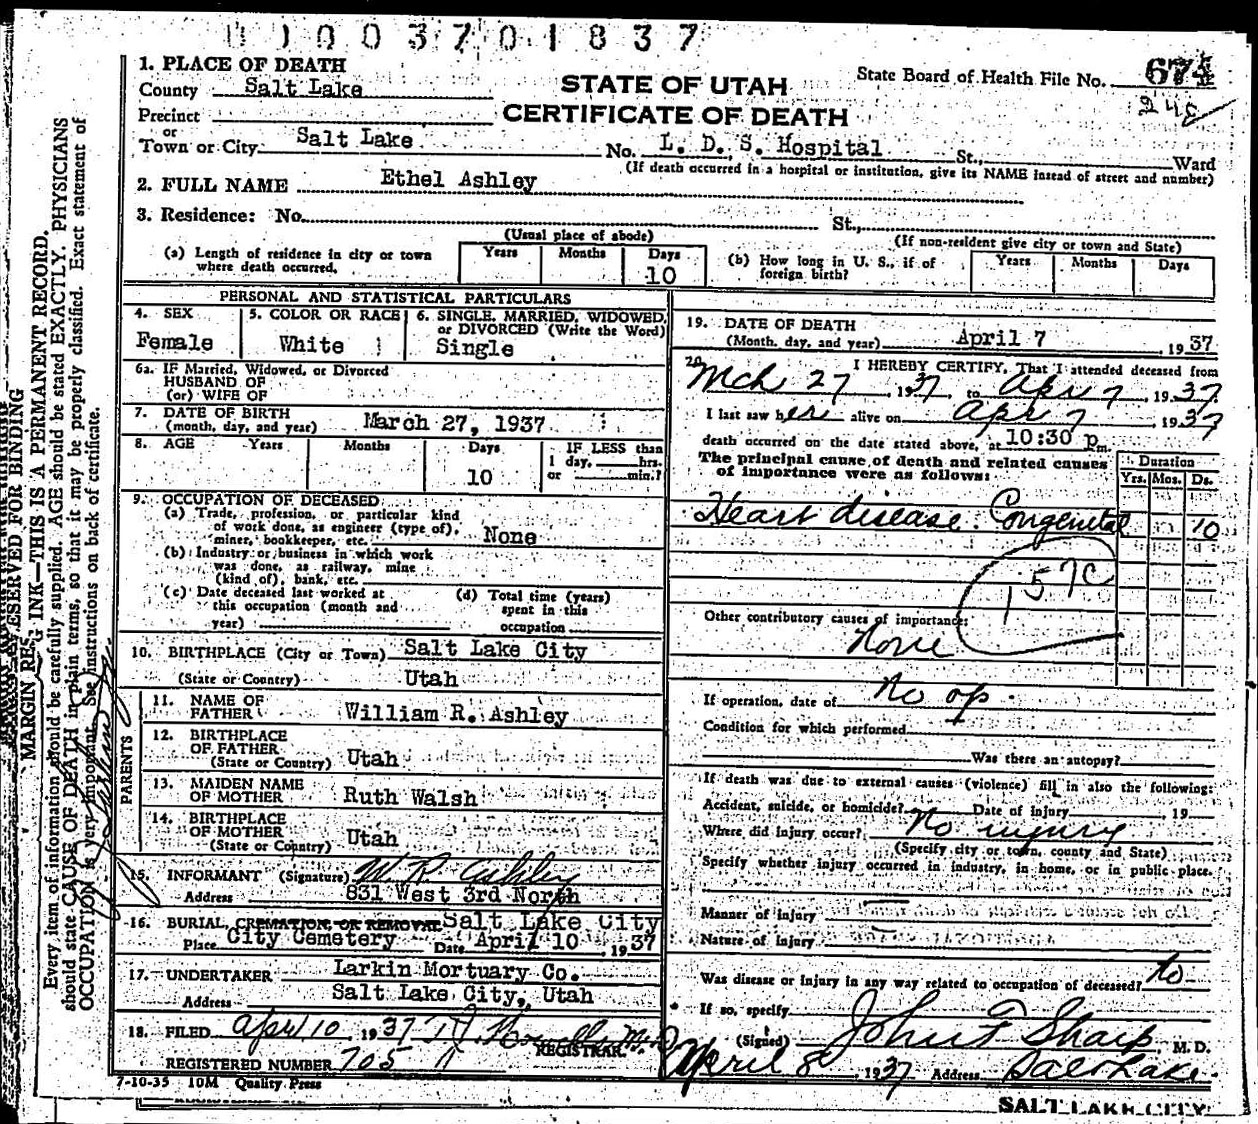 0 1 0 0 3 7 0 1 8 3 7
1. PLACE OF DEATH
County Salt Lake
STATE OF UTAH
State Board of Health File No. 674
Precinct
CERTIFICATE OF DEATH
248
or
Town or City Salt Lake No. L. D. S. Hospital St., Ward
(If death occurred in a hospital or institution, give its NAME instead of street and number)
2. FULL NAME Ethel Ashley
3. Residence: No. St.,
(Usual place of abode) (If non-resident give city or town and State)
(a) Length of residence in city or town where death occurred. Years Months Days 10
(b) How long in U. S., if of foreign birth? Years Months Days
PERSONAL AND STATISTICAL PARTICULARS
4. SEX Female
5. COLOR OR RACE White
6. SINGLE, MARRIED, WIDOWED, or DIVORCED (Write the Word) Single
6a. IF Married, Widowed, or Divorced
HUSBAND OF
(or) WIFE OF
7. DATE OF BIRTH
(month, day, and year) March 27, 1937
8. AGE Years Months Days 10 IF LESS than
1 day, hrs.
or min.?
9. OCCUPATION OF DECEASED
(a) Trade, profession, or particular kind
of work done, as engineer (type of),
miner, bookkeeper, etc. None
(b) Industry or business in which work
was done, as railway, mine
(kind of), bank, etc.
(c) Date deceased last worked at
this occupation (month and
year)
(d) Total time (years)
spent in this
occupation
10. BIRTHPLACE (City or Town) Salt Lake City
(State or Country) Utah
PARENTS
11. NAME OF
FATHER William R. Ashley
12. BIRTHPLACE
OF FATHER
(State or Country) Utah
13. MAIDEN NAME
OF MOTHER Ruth Walsh
14. BIRTHPLACE
OF MOTHER
(State or Country) Utah
15. INFORMANT (Signature) W R Ashley
Address 831 West 3rd North
16. BURIAL, CREMATION, OR REMOVAL Salt Lake City
Place City Cemetery Date April 10, 1937
17. UNDERTAKER Larkin Mortuary Co.
Address Salt Lake City, Utah
18. FILED Apr 10 1937
REGISTRAR.
REGISTERED NUMBER 705
7-10-35 10M Quality Press
19. DATE OF DEATH
(Month, day, and year) April 7, 1937
20. I HEREBY CERTIFY, That I attended deceased from
Mch 27, 1937 to Apr 7, 1937
I last saw her alive on Apr 7, 1937
death occurred on the date stated above, at 10:30 p m.
The principal cause of death and related causes
of importance were as follows:
Duration
Yrs. Mos. Ds.
Heart disease. Congenital 10
157c
Other contributory causes of importance:
None
If operation, date of No op.
Condition for which performed
Was there an autopsy?
If death was due to external causes (violence) fill in also the following:
Accident, suicide, or homicide? Date of injury , 19
Where did injury occur? No injury
(Specify city or town, county and State)
Specify whether injury occurred in industry, in home, or in public place.
Manner of injury
Nature of injury
Was disease or injury in any way related to occupation of deceased? No
If so, specify
(Signed) John F Sharp, M. D.
April 8, 1937 Address Salt Lake.
SALT LAKE CITY
MARGIN RESERVED FOR BINDING
INK—THIS IS A PERMANENT RECORD.
Every item of information should be carefully supplied. AGE should be stated EXACTLY. PHYSICIANS
should state CAUSE OF DEATH in plain terms, so that it may be properly classified. Exact statement of
OCCUPATION is very important. See instructions on back of certificate.